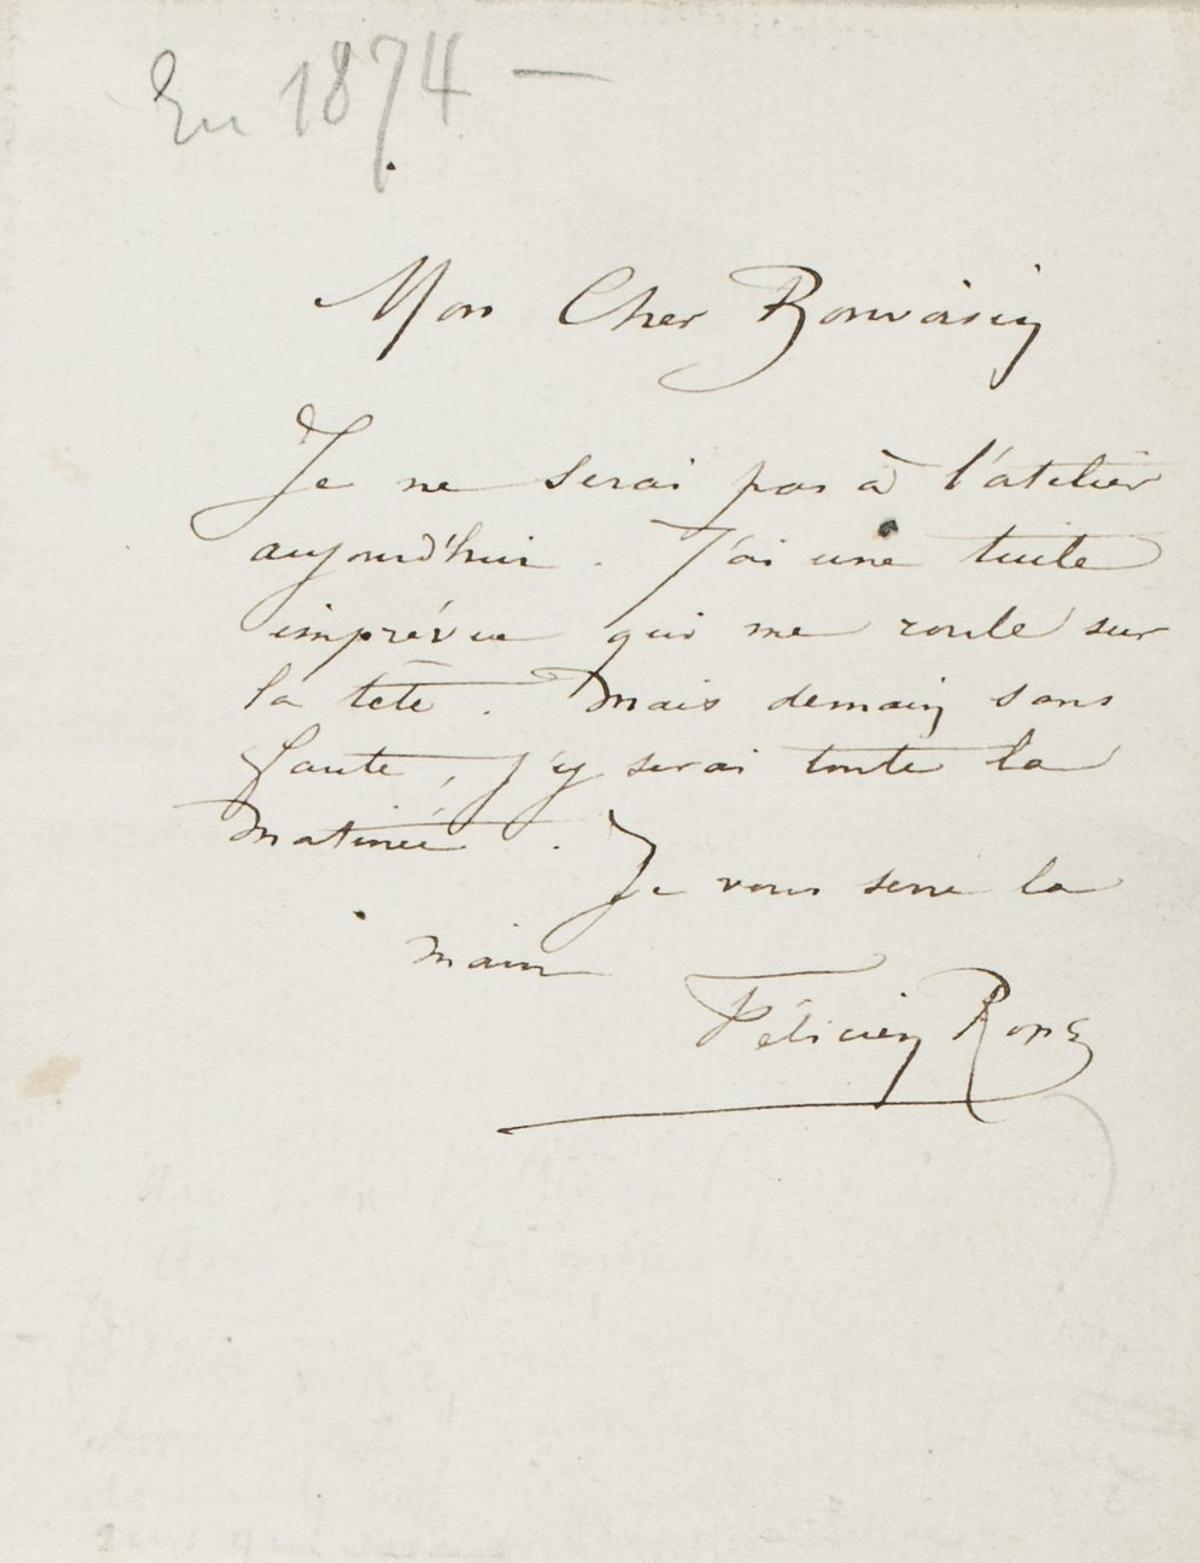 En 1874 —
Mon Cher Bonvoisin
Je ne serai pas à l'atelier
aujourd'hui. J'ai une tuile
imprévue qui me roule sur
la tête. Mais demain sans
faute, j'y serai toute la
matinée. Je vous serre la
main
Félicien Rops